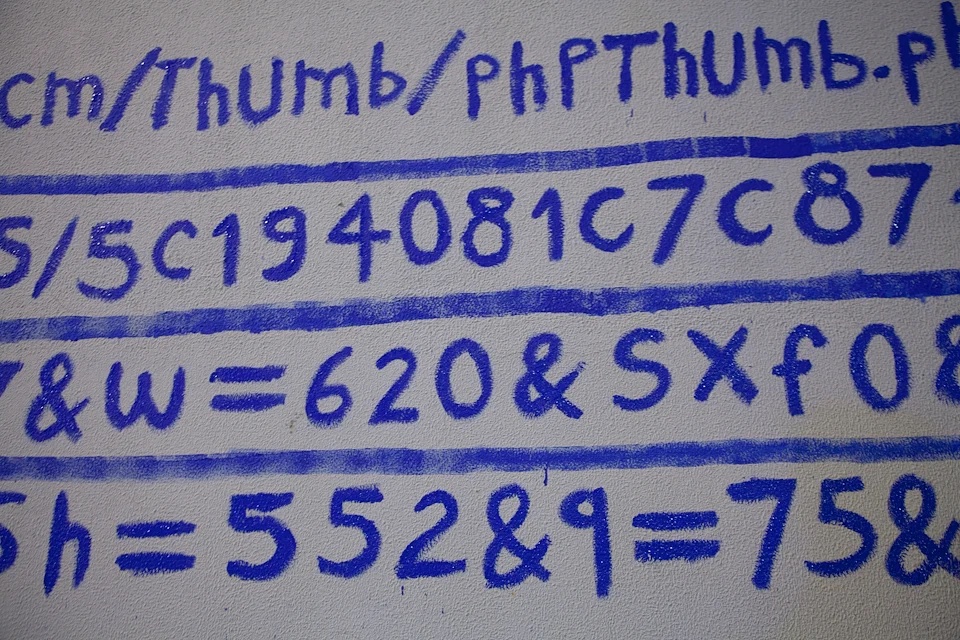 cm/Thumb/phpThumb.ph
5/5C194081C7C87
&w=620&SXf0&
Sh=552&q=75&